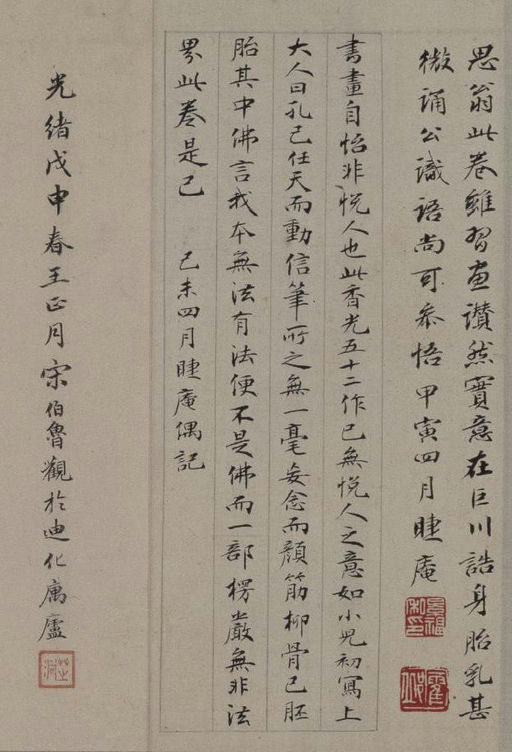 思翁此卷雖習畫讚然實意在巨川誥身胎乳甚
微誦公識語尚可參悟甲寅四月睫庵
書畫自怡非悅人也此香光五十二作已無悅人之意如小兒初寫上
大人曰孔己任天而動信筆所之無一毫妄念而顏筋柳骨已胚
胎其中佛言我本無法有法便不是佛而一部楞嚴無非法
界此卷是已 己未四月睫庵偶記
光緒戊申春王正月宋伯魯觀於迪化寓廬